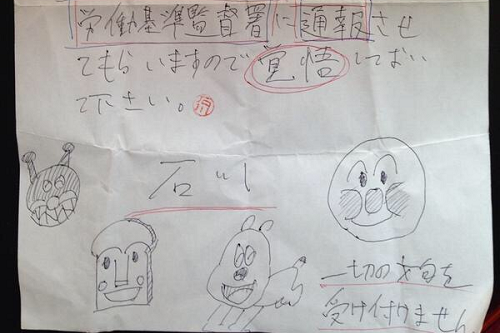 労働基準監督署に通報させ
てもらいますので覚悟しておい
て下さい。
石川
一切の文句を
受け付けません